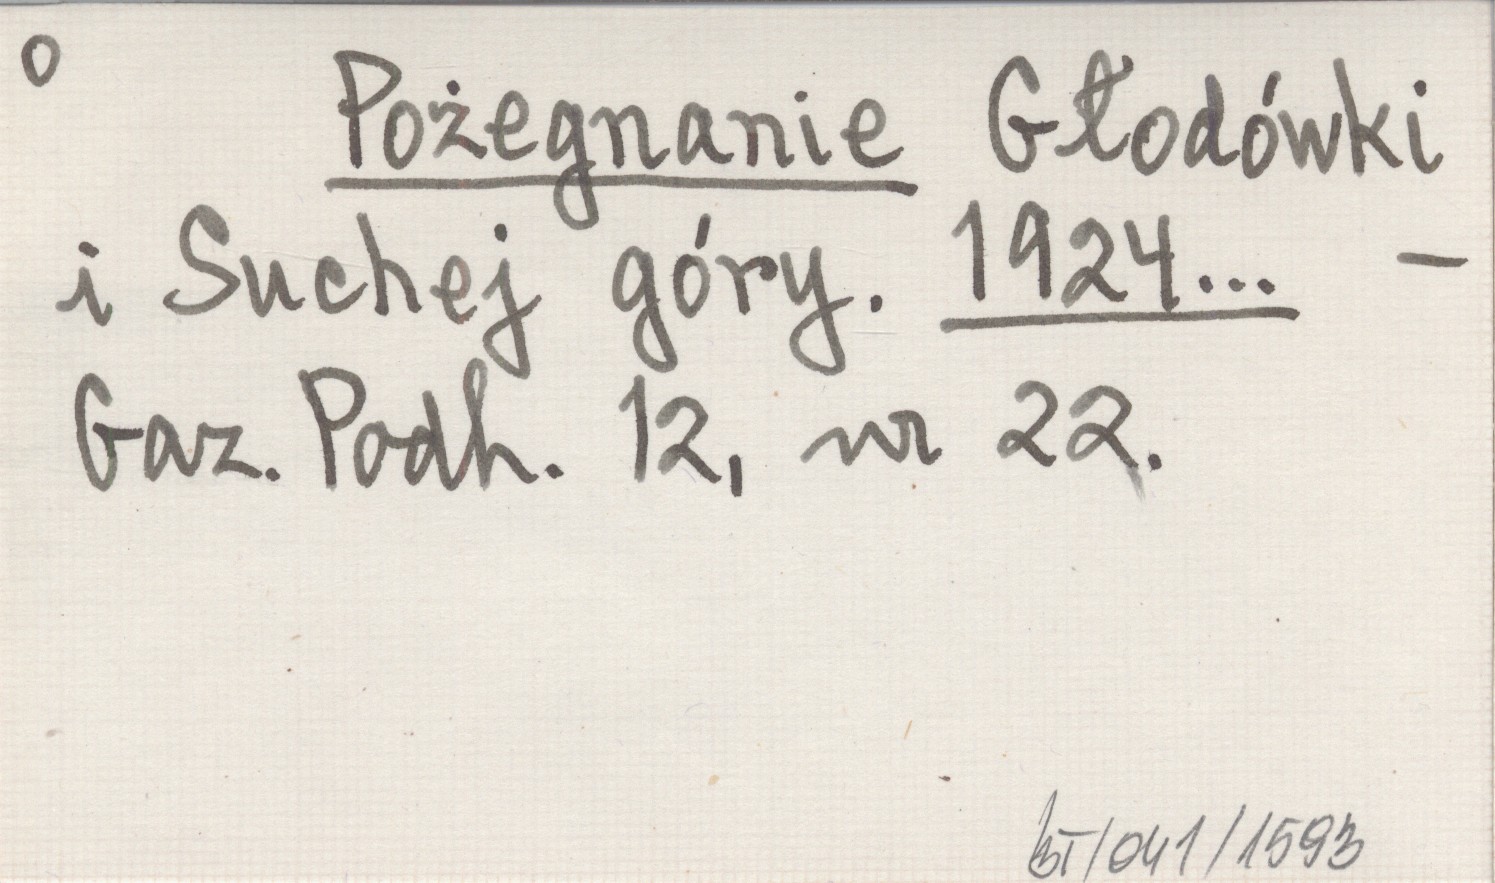 o Pożegnanie Głodówki
i Suchej góry. 1924... –
Gaz. Podh. 12, nr 22.
/041/1593